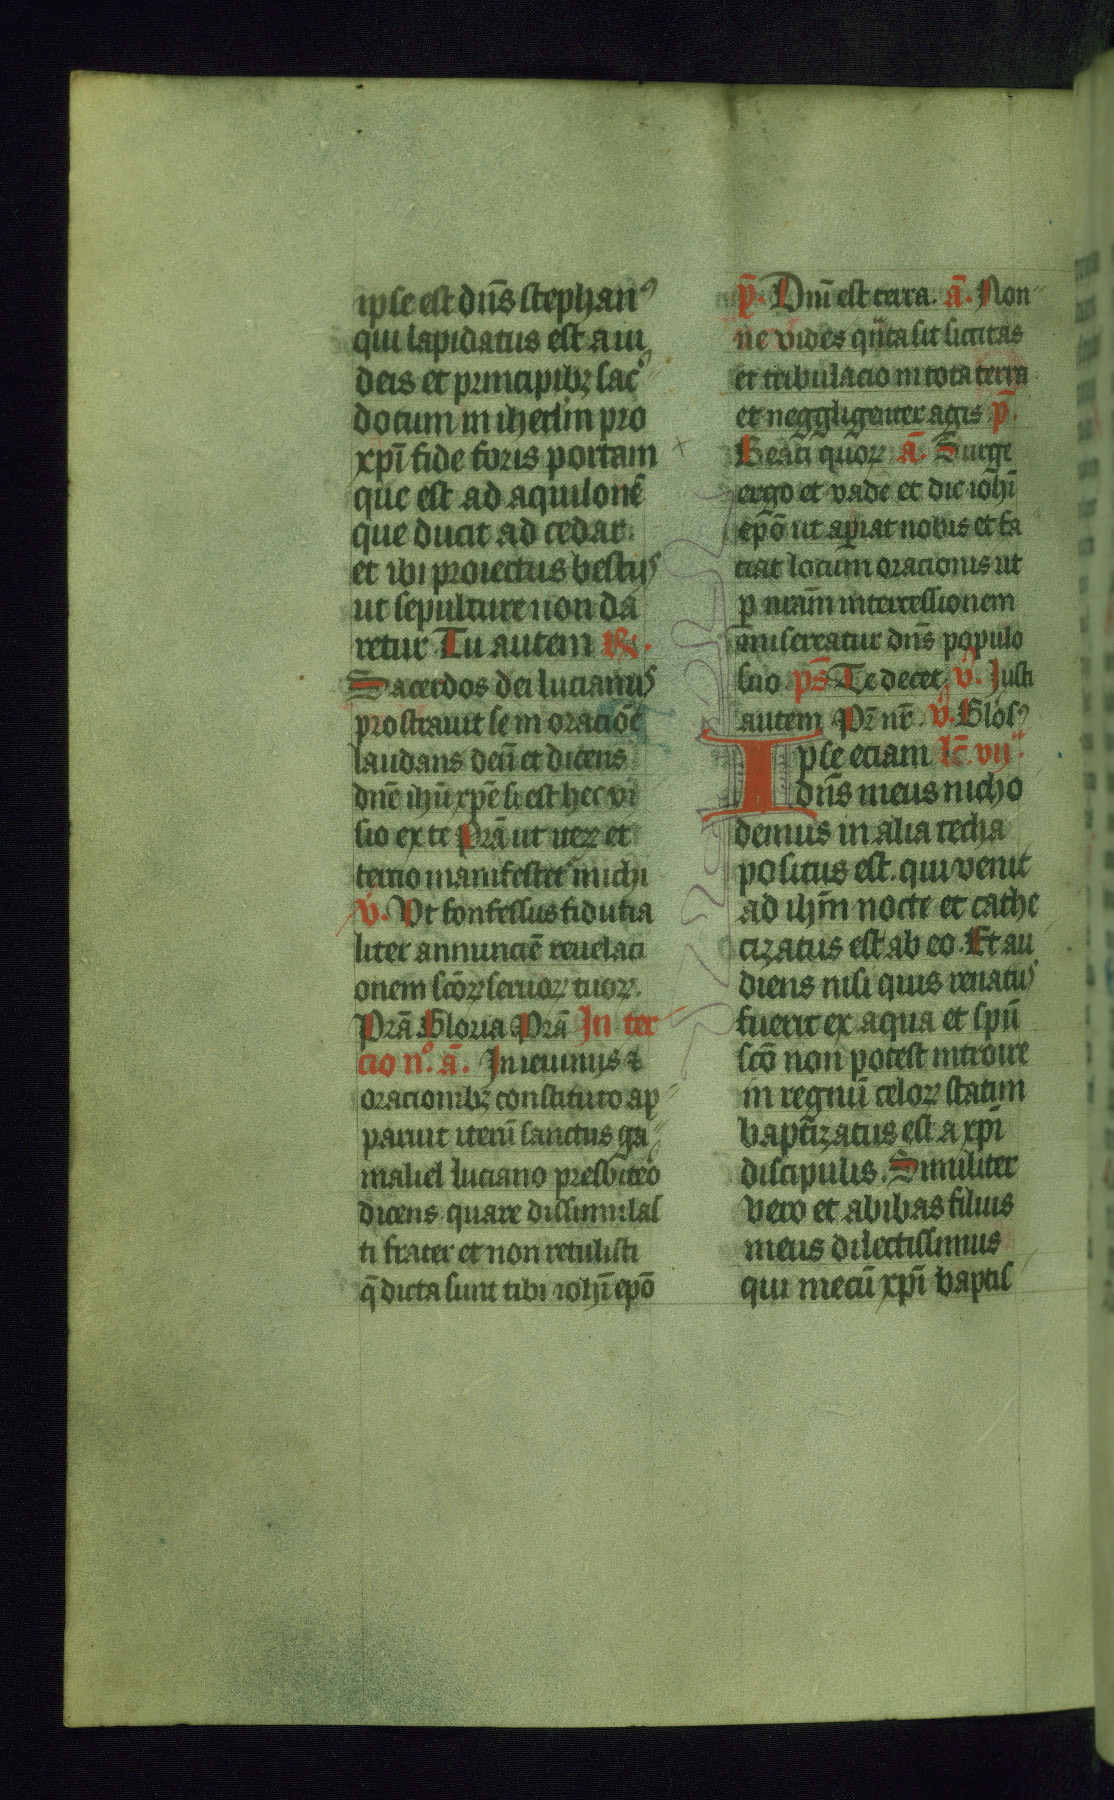 ipse est dn̄s stephan᷒
qui lapidatus est a iu
deis et principibꝫ sac᷒
dotum in ih̄erlm̄ pro
xp̄i fide foris portam
que est ad aquilonē
que ducit ad cedar.
et ibi proiectus bestijs
ut sepulture non da
retur Tu autem R̸.
Sacerdos dei lucianus
prostrauit se in oracōe
laudans deū et dicens
dn̄e ihū xp̄e si est hec vi
sio ex te Prā ut iteꝝ et
tercio manifestet᷒ michi
v̄. Vt confessus fiducia
liter annunciē reuelaci
onem scōꝝ seruoꝝ tuoꝝ.
Prā Gloria Prā In ter
cio n᷒. ā. In ieiunijs ⁊
oracionibꝫ constituto ap
paruit iterū sanctus ga
maliel luciano presbit̄eo
dicens quare dissimulas
ti frater et non retulisti
q̄ dicta sunt tibi ioh̄i ep̄o
p̄. Dn̄i est terra. ā. Non
ne vides qn̄ta sit siccitas
et tribulacio in tota terra
et neggligenter agis p̄.
Beati quoꝝ ā. Surge
ergo et vade et dic ioh̄i
ep̄o ut aꝑiat nobis et fa
ciat locum oracionis ut
ꝑ nr̄am intercessionem
misereatur dn̄s populo
suo ps̄ Te decet. v̄. Justi
autem Pr̄ nr̄. v̄. Glos᷒
Ipse eciam lc̄. vij
dn̄s meus nicho
demus in alia techa
positus est. qui venit
ad ih̄m nocte et cathe
cizatus est ab eo. Et au
diens nisi quis renatus
fuerit ex aqua et spū
scō non potest introire
in regnū celoꝝ statim
baptizatus est a xp̄i
discipulis. Similiter
vero et abibas filius
meus dilectissimus
qui mecū xp̄i baptis